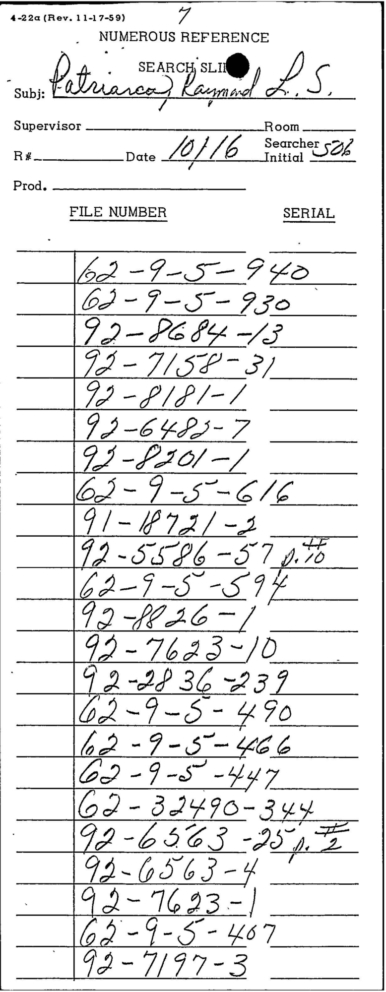 4-22a (Rev. 11-17-59)
7
NUMEROUS REFERENCE
SEARCH SLIP
Subj: Patriarca, Raymond L. S.
Supervisor Room
R# Date 10/16 Searcher Initial 506
Prod.
FILE NUMBER SERIAL
62-9-5-940
62-9-5-930
92-8684-13
92-7158-31
92-8181-1
92-6482-7
92-8201-1
62-9-5-616
91-18721-2
92-5586-57 p. # 10
62-9-5-594
92-8826-1
92-7623-10
92-2836-239
62-9-5-490
62-9-5-466
62-9-5-447
62-32490-344
92-6563-25 p. # 2
92-6563-4
92-7623-1
62-9-5-407
92-7197-3